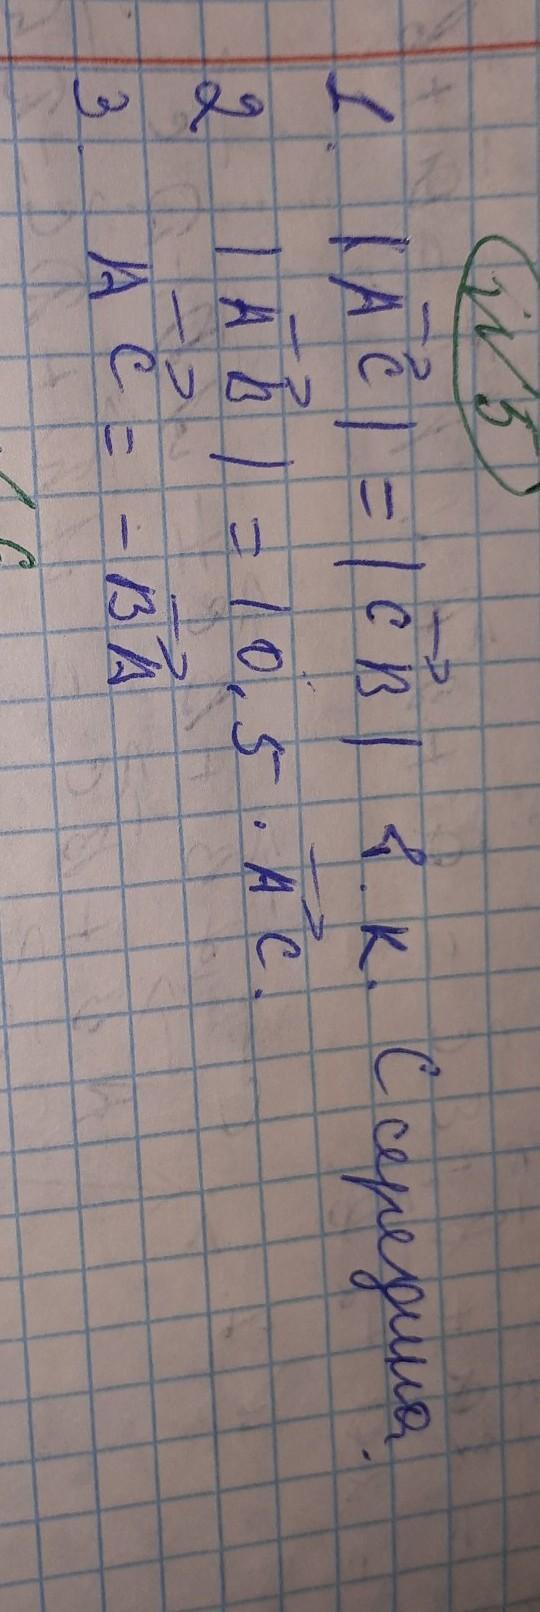 №5
1. |A⃗C⃗| = |C⃗B⃗| т.к. С середина.
2 |A⃗B⃗| = |0,5 · A⃗C⃗.
3. A⃗C⃗ = - B⃗A⃗